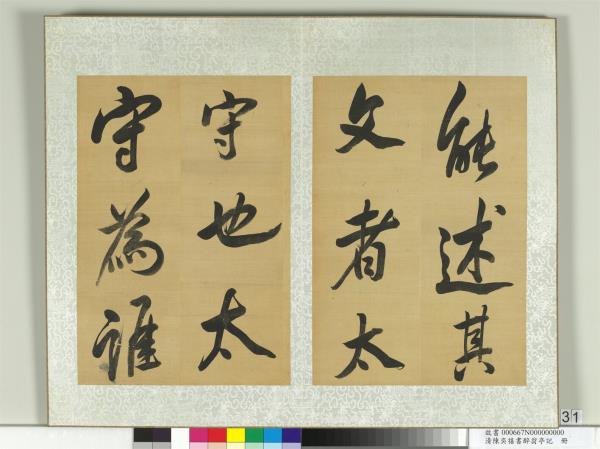 能述其
文者太
守也太
守為誰
31
故書 000667N000000000
清陳奕禧書醉翁亭記 冊